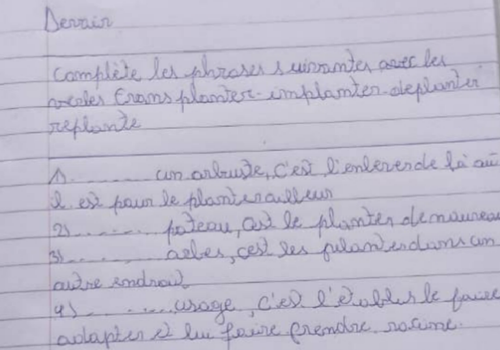 Devoir
Complète les phrases suivantes avec les
verbes transplanter-implanter-déplanter
replante
1) ........ un arbuste, c'est l'enlever de là où
il est pour le planter ailleur
2) ........ poteau, c'st le planter de nouveau
3) ........ arbes, c'est les planter dans un
autre endroit
4) ........ usage, c'est l'établir le faire
adapter et lui faire prendre racine.